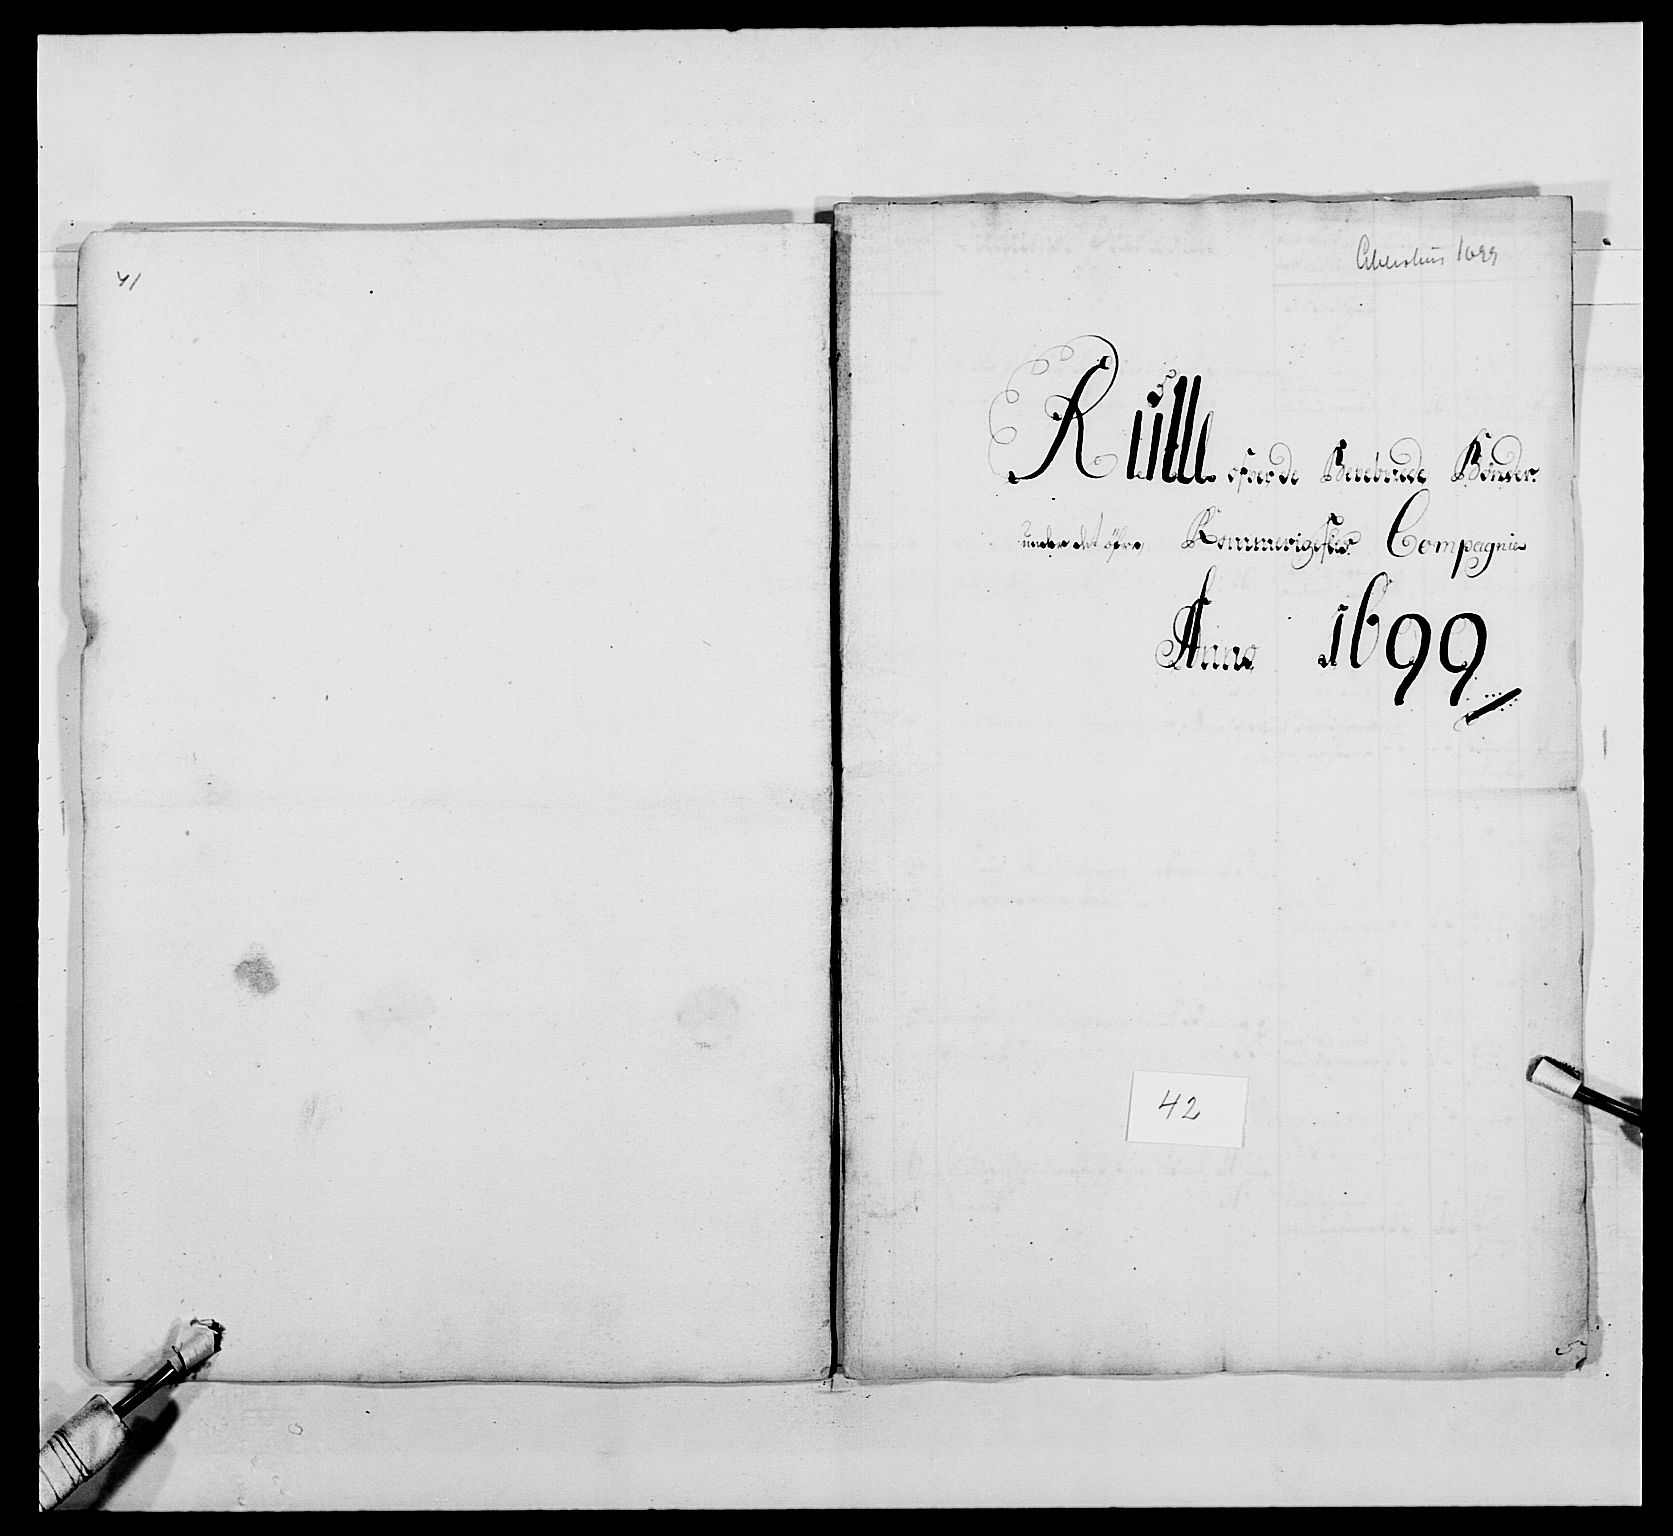 41
Akershus 1699
Rulle ofver de Beneb​nede Bønder
under det øfre Rommerigeshe Compagnie
Anno 1699
42